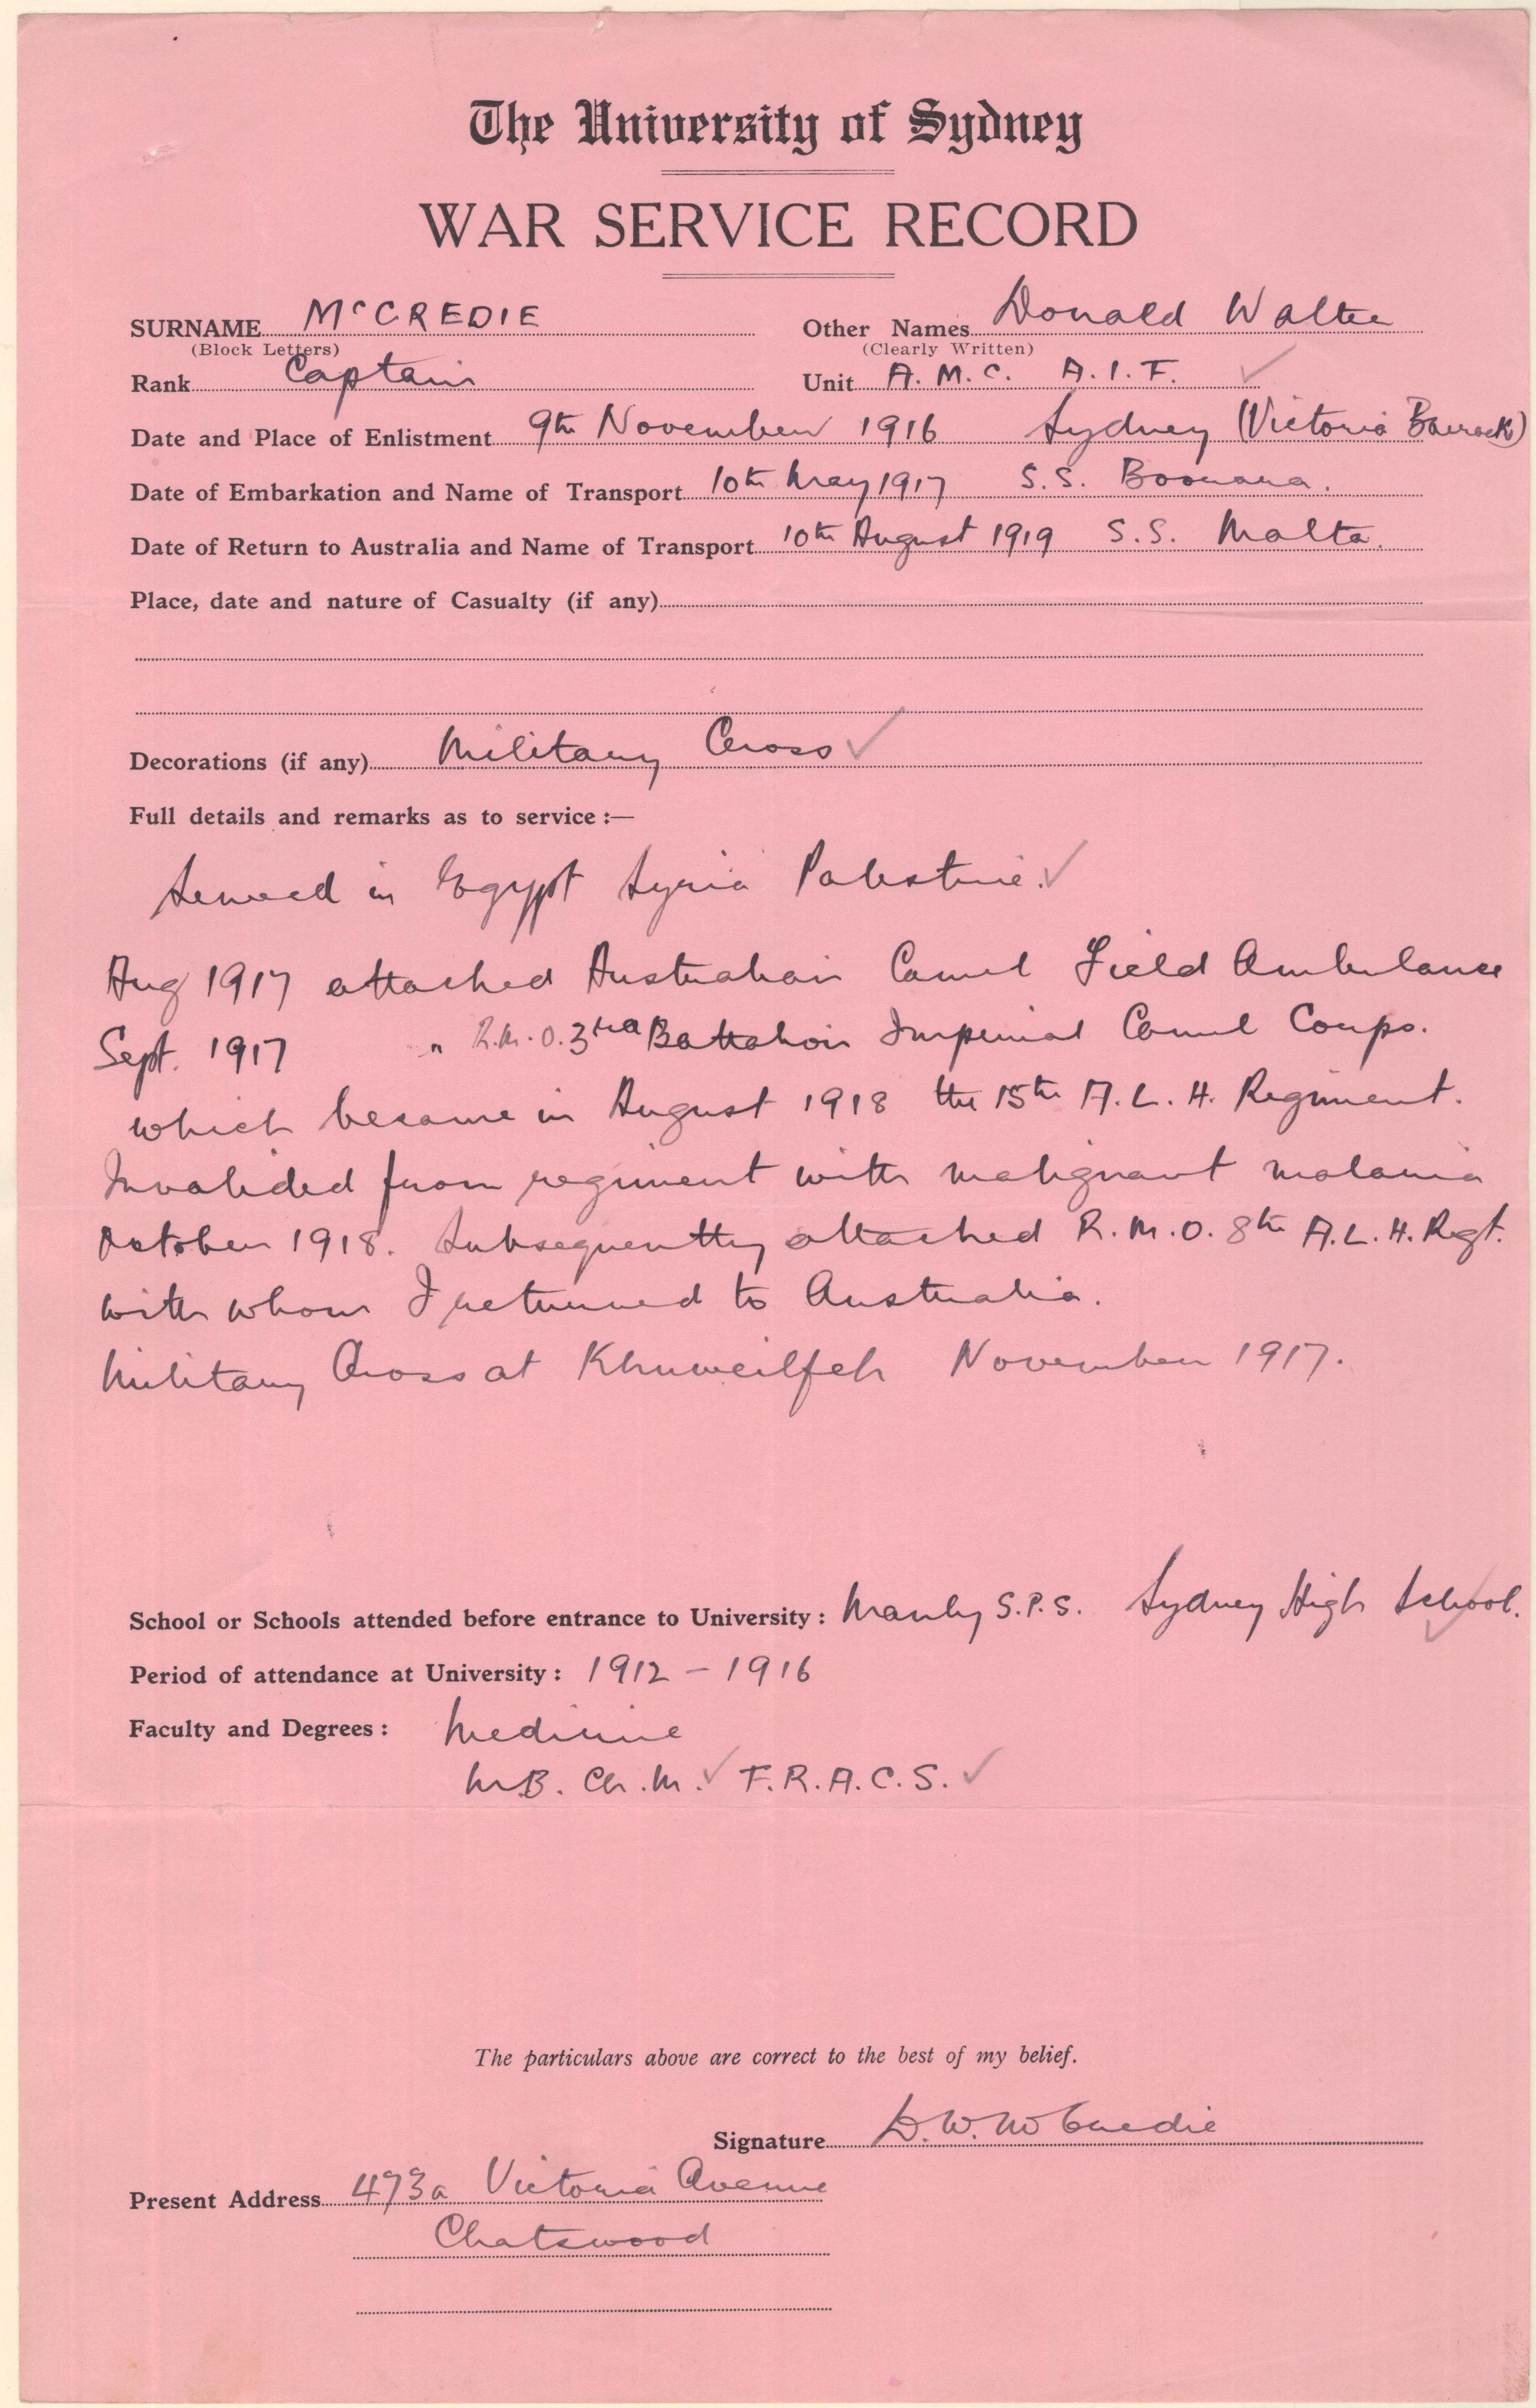 The University of Sydney
WAR SERVICE RECORD
SURNAME McCREDIE Other Names Donald Walter
(Block Letters) (Clearly Written)
Rank Captain Unit A.M.C. A.I.F.
Date and Place of Enlistment 9th November 1916 Sydney (Victoria Barracks)
Date of Embarkation and Name of Transport 10th May 1917 S.S. Boorara.
Date of Return to Australia and Name of Transport 10th August 1919 S.S. Malta.
Place, date and nature of Casualty (if any)
Decorations (if any) Military Cross
Full details and remarks as to service :—
Served in Egypt Syria Palestine.
Aug 1917 attached Australian Camel Field Ambulance
Sept. 1917 " R.M.O. 3rd Battalion Imperial Camel Corps.
which became in August 1918 the 15th A.L.H. Regiment.
Invalided from regiment with malignant malaria
October 1918. Subsequently attached R.M.O. 8th A.L.H. Regt.
with whom I returned to Australia.
Military Cross at Khuweilfeh November 1917.
School or Schools attended before entrance to University : Manly S.P.S. Sydney High School.
Period of attendance at University : 1912 – 1916
Faculty and Degrees : Medicine
M.B. Ch.M. F.R.A.C.S.
The particulars above are correct to the best of my belief.
Signature D.W. McCredie
Present Address 473a Victoria Avenue
Chatswood